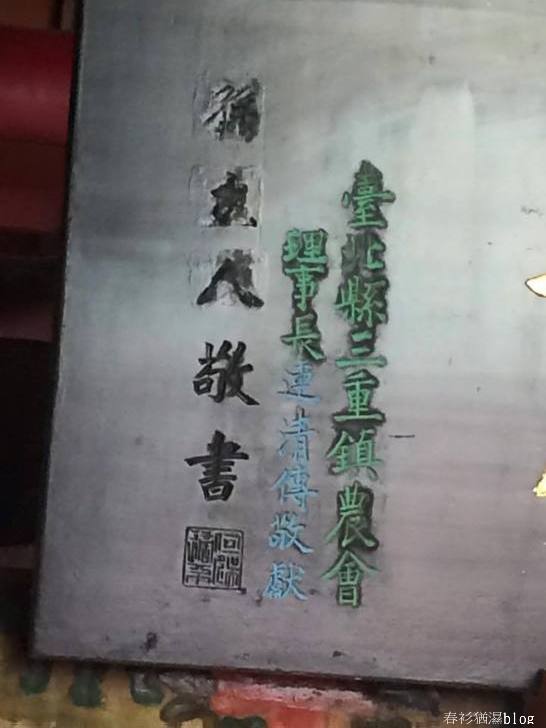 臺北縣三重鎮農會
理事長連清傳敬獻
人敬書
春衫猶濕blog